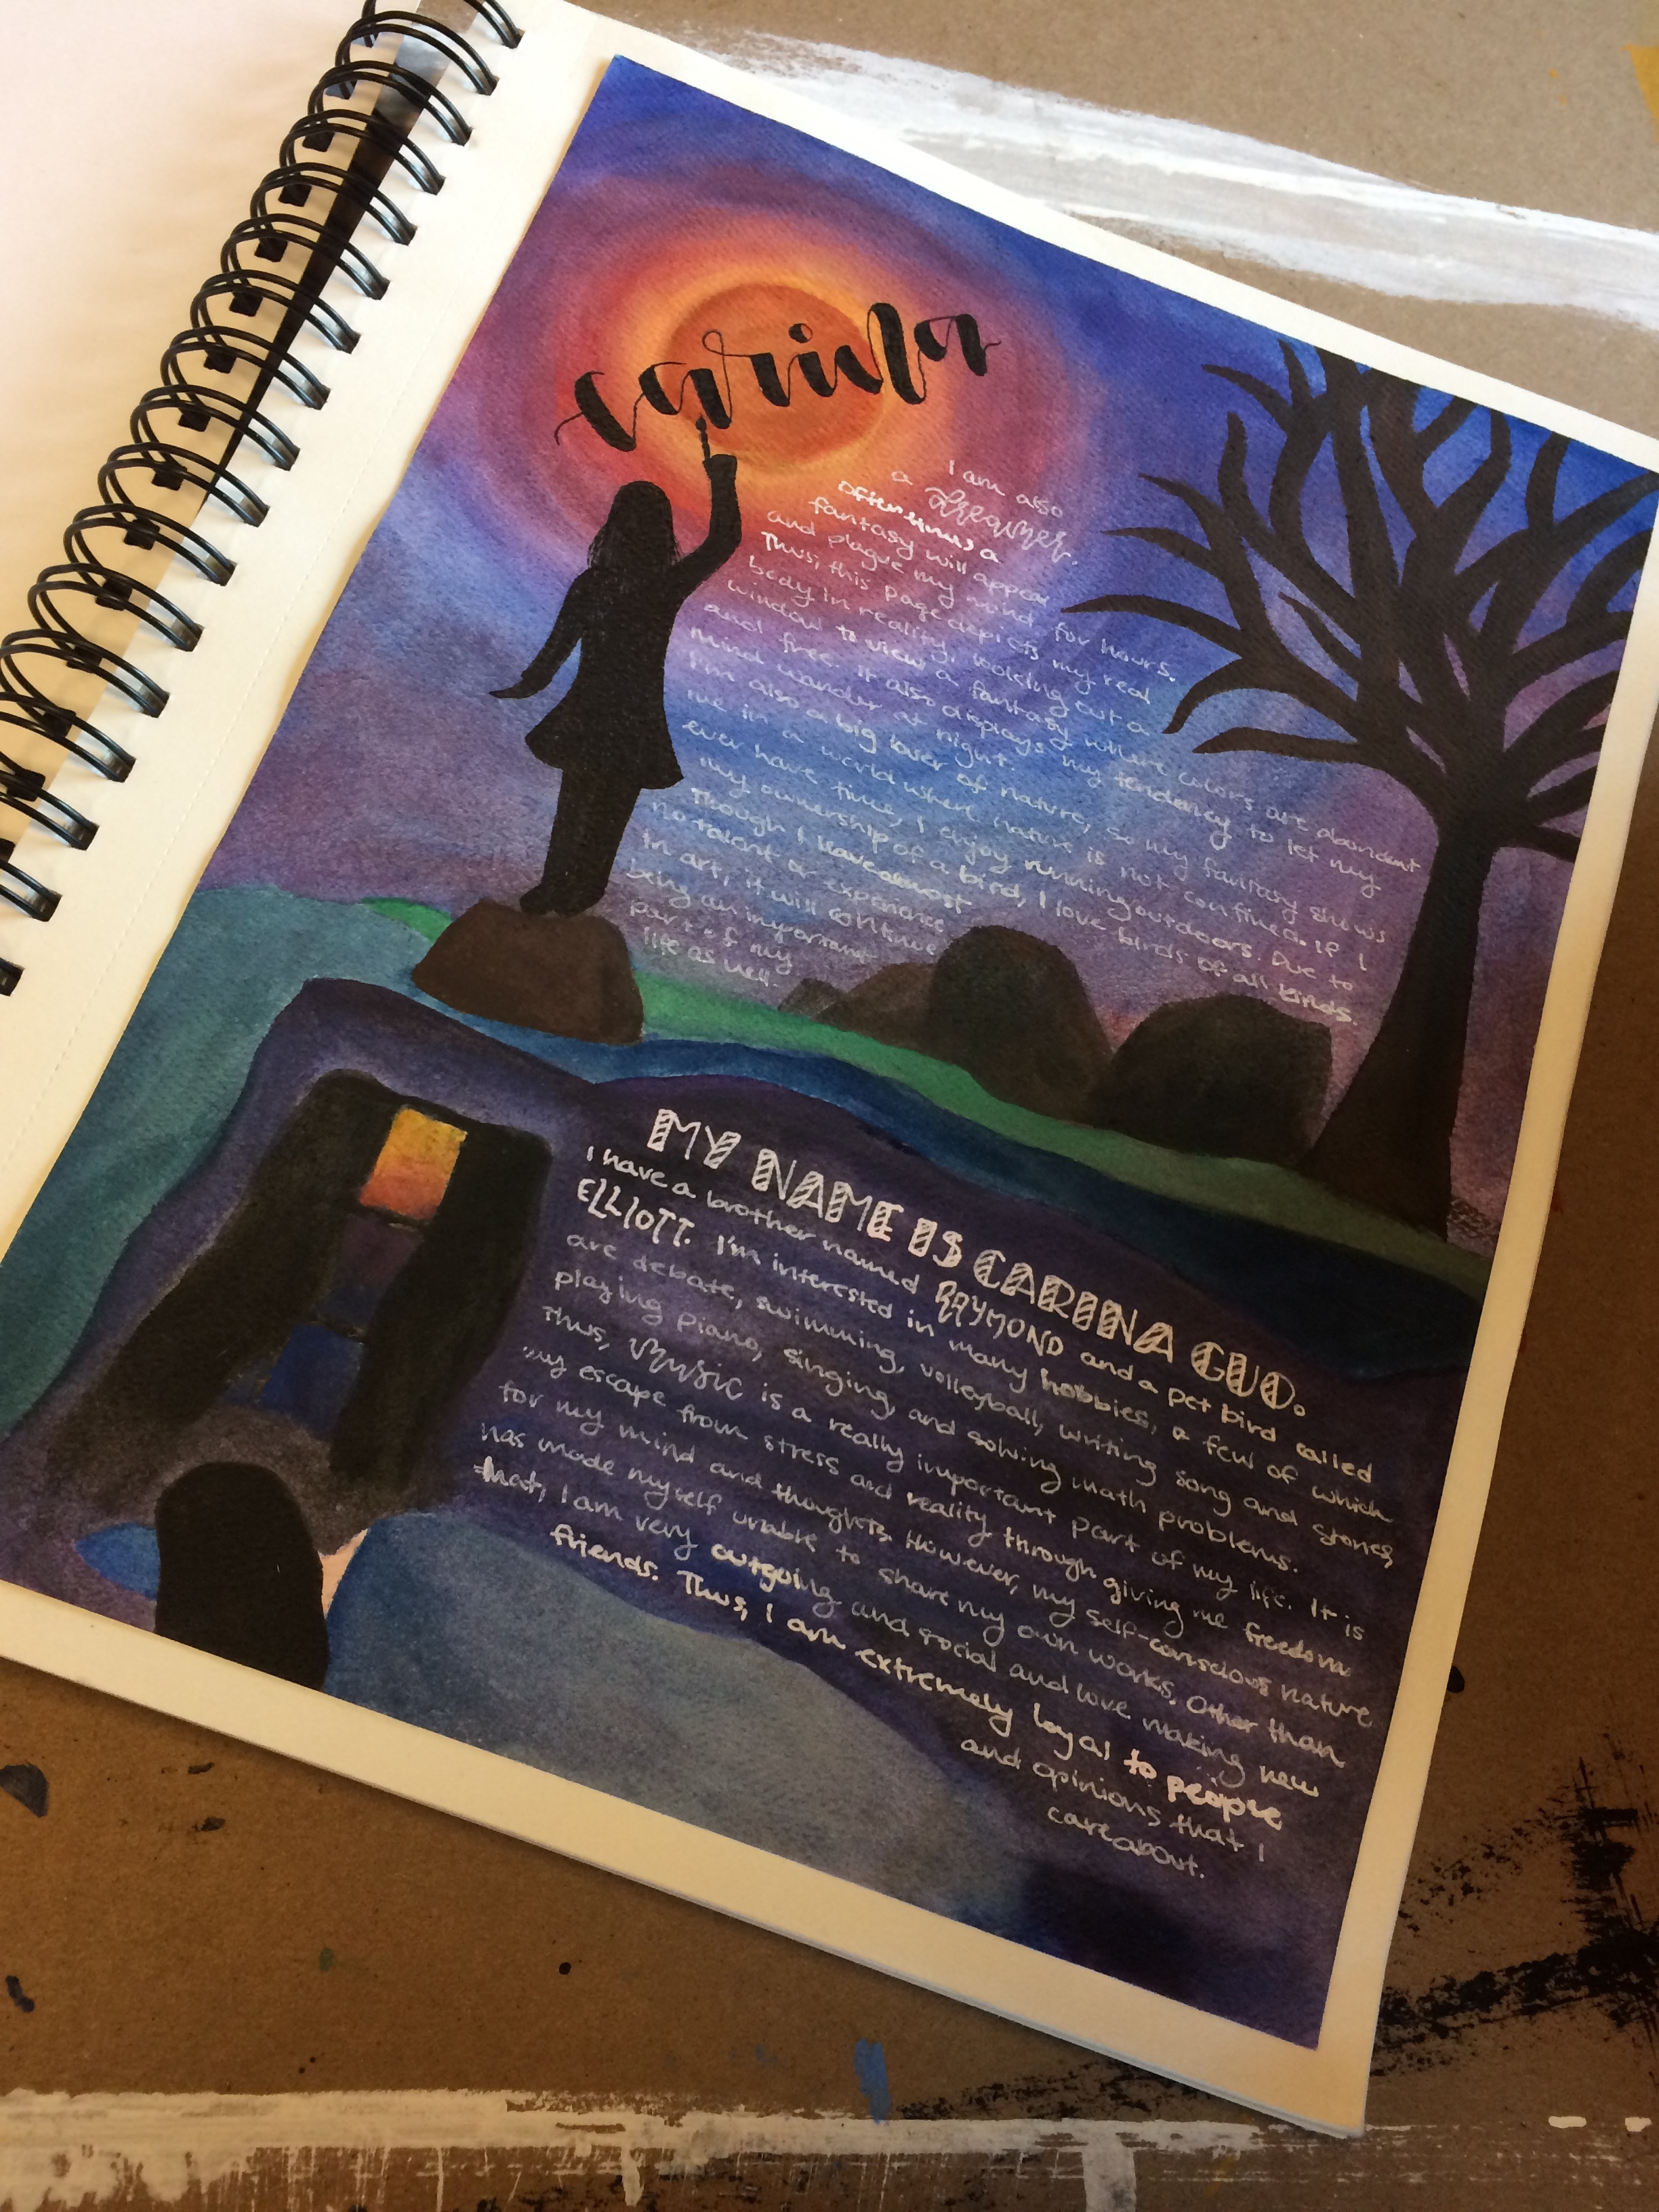 carina
I am also
a dreamer.
Oftentimes a
fantasy will appear
and plague my mind for hours.
Thus, this page depicts my real
body in reality, looking out a
window to view a fantasy where colors are abundant
and free. It also displays my tendency to let my
mind wander at night.
I'm also a big lover of nature, so my fantasy shows
me in a world where nature is not confined. If I
ever have time, I enjoy running outdoors. Due to
my ownership of a bird, I love birds of all kinds.
Though I have almost
no talent or experience
in art, it will continue
being an important
part of my
life as well.
MY NAME IS CARINA GUO.
I have a brother named RAYMOND and a pet bird called
ELLIOTT. I'm interested in many hobbies, a few of which
are debate, swimming, volleyball, writing song and stories,
playing piano, singing, and solving math problems.
Thus, music is a really important part of my life. It is
my escape from stress and reality through giving me freedom
for my mind and thoughts. However, my self-conscious nature
has made myself unable to share my own works. Other than
that, I am very outgoing and social and love making new
friends. Thus, I am extremely loyal to people
and opinions that I
care about.